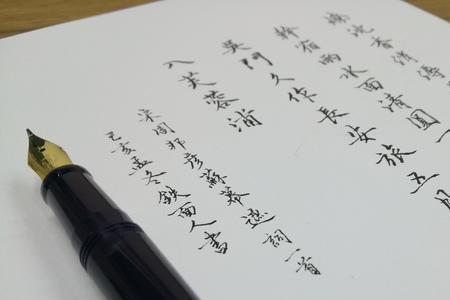 燎沈香消溽
幹宿雨水面清圓一
吳門久作長安旅五月
入芙蓉浦
宋周邦彥蘇幕遮詞一首
己亥孟冬鉄面人書